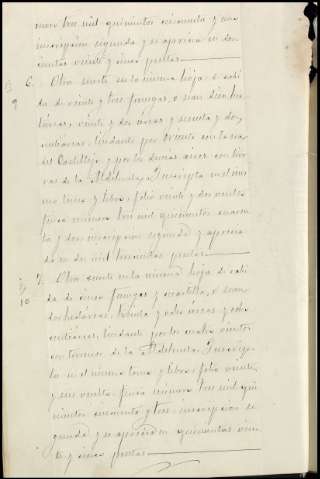 mero tres mil quinientos cincuenta y una
inscripcion segunda y se aprecia en dos
cientas veinte y cinco pesetas
6. Otra suerte en la misma hoja, de cabi
9 da de veinte y tres fanegas, o sean diez hec
táreas, veinte y dos areas y sesenta y dos
centiáreas, lindante por Oriente con la
del Castillejo, y por los demas aires con tier
ras de la Aldehuela. Inscripta en el mis
mo tomo y libro, folio veinte y dos vuelto
finca número tres mil quinientos cincuen
ta y dos inscripcion segunda y aprecia
da en dos mil trescientas pesetas
7. Otra suerte en la misma hoja de cabi
10 da de cinco fanegas y cuartilla, o sean
dos hectáreas, treinta y ocho áreas y ocho
centiáreas, lindante por los cuatro vientos
con terrenos de la Aldehuela. Inscrip
ta en el mismo tomo y libro, folio veinte
y seis vuelto, finca número tres mil qui
nientos cincuenta y tres, inscripcion se
gunda y se aprecia en quinientas vein
te y cinco pesetas